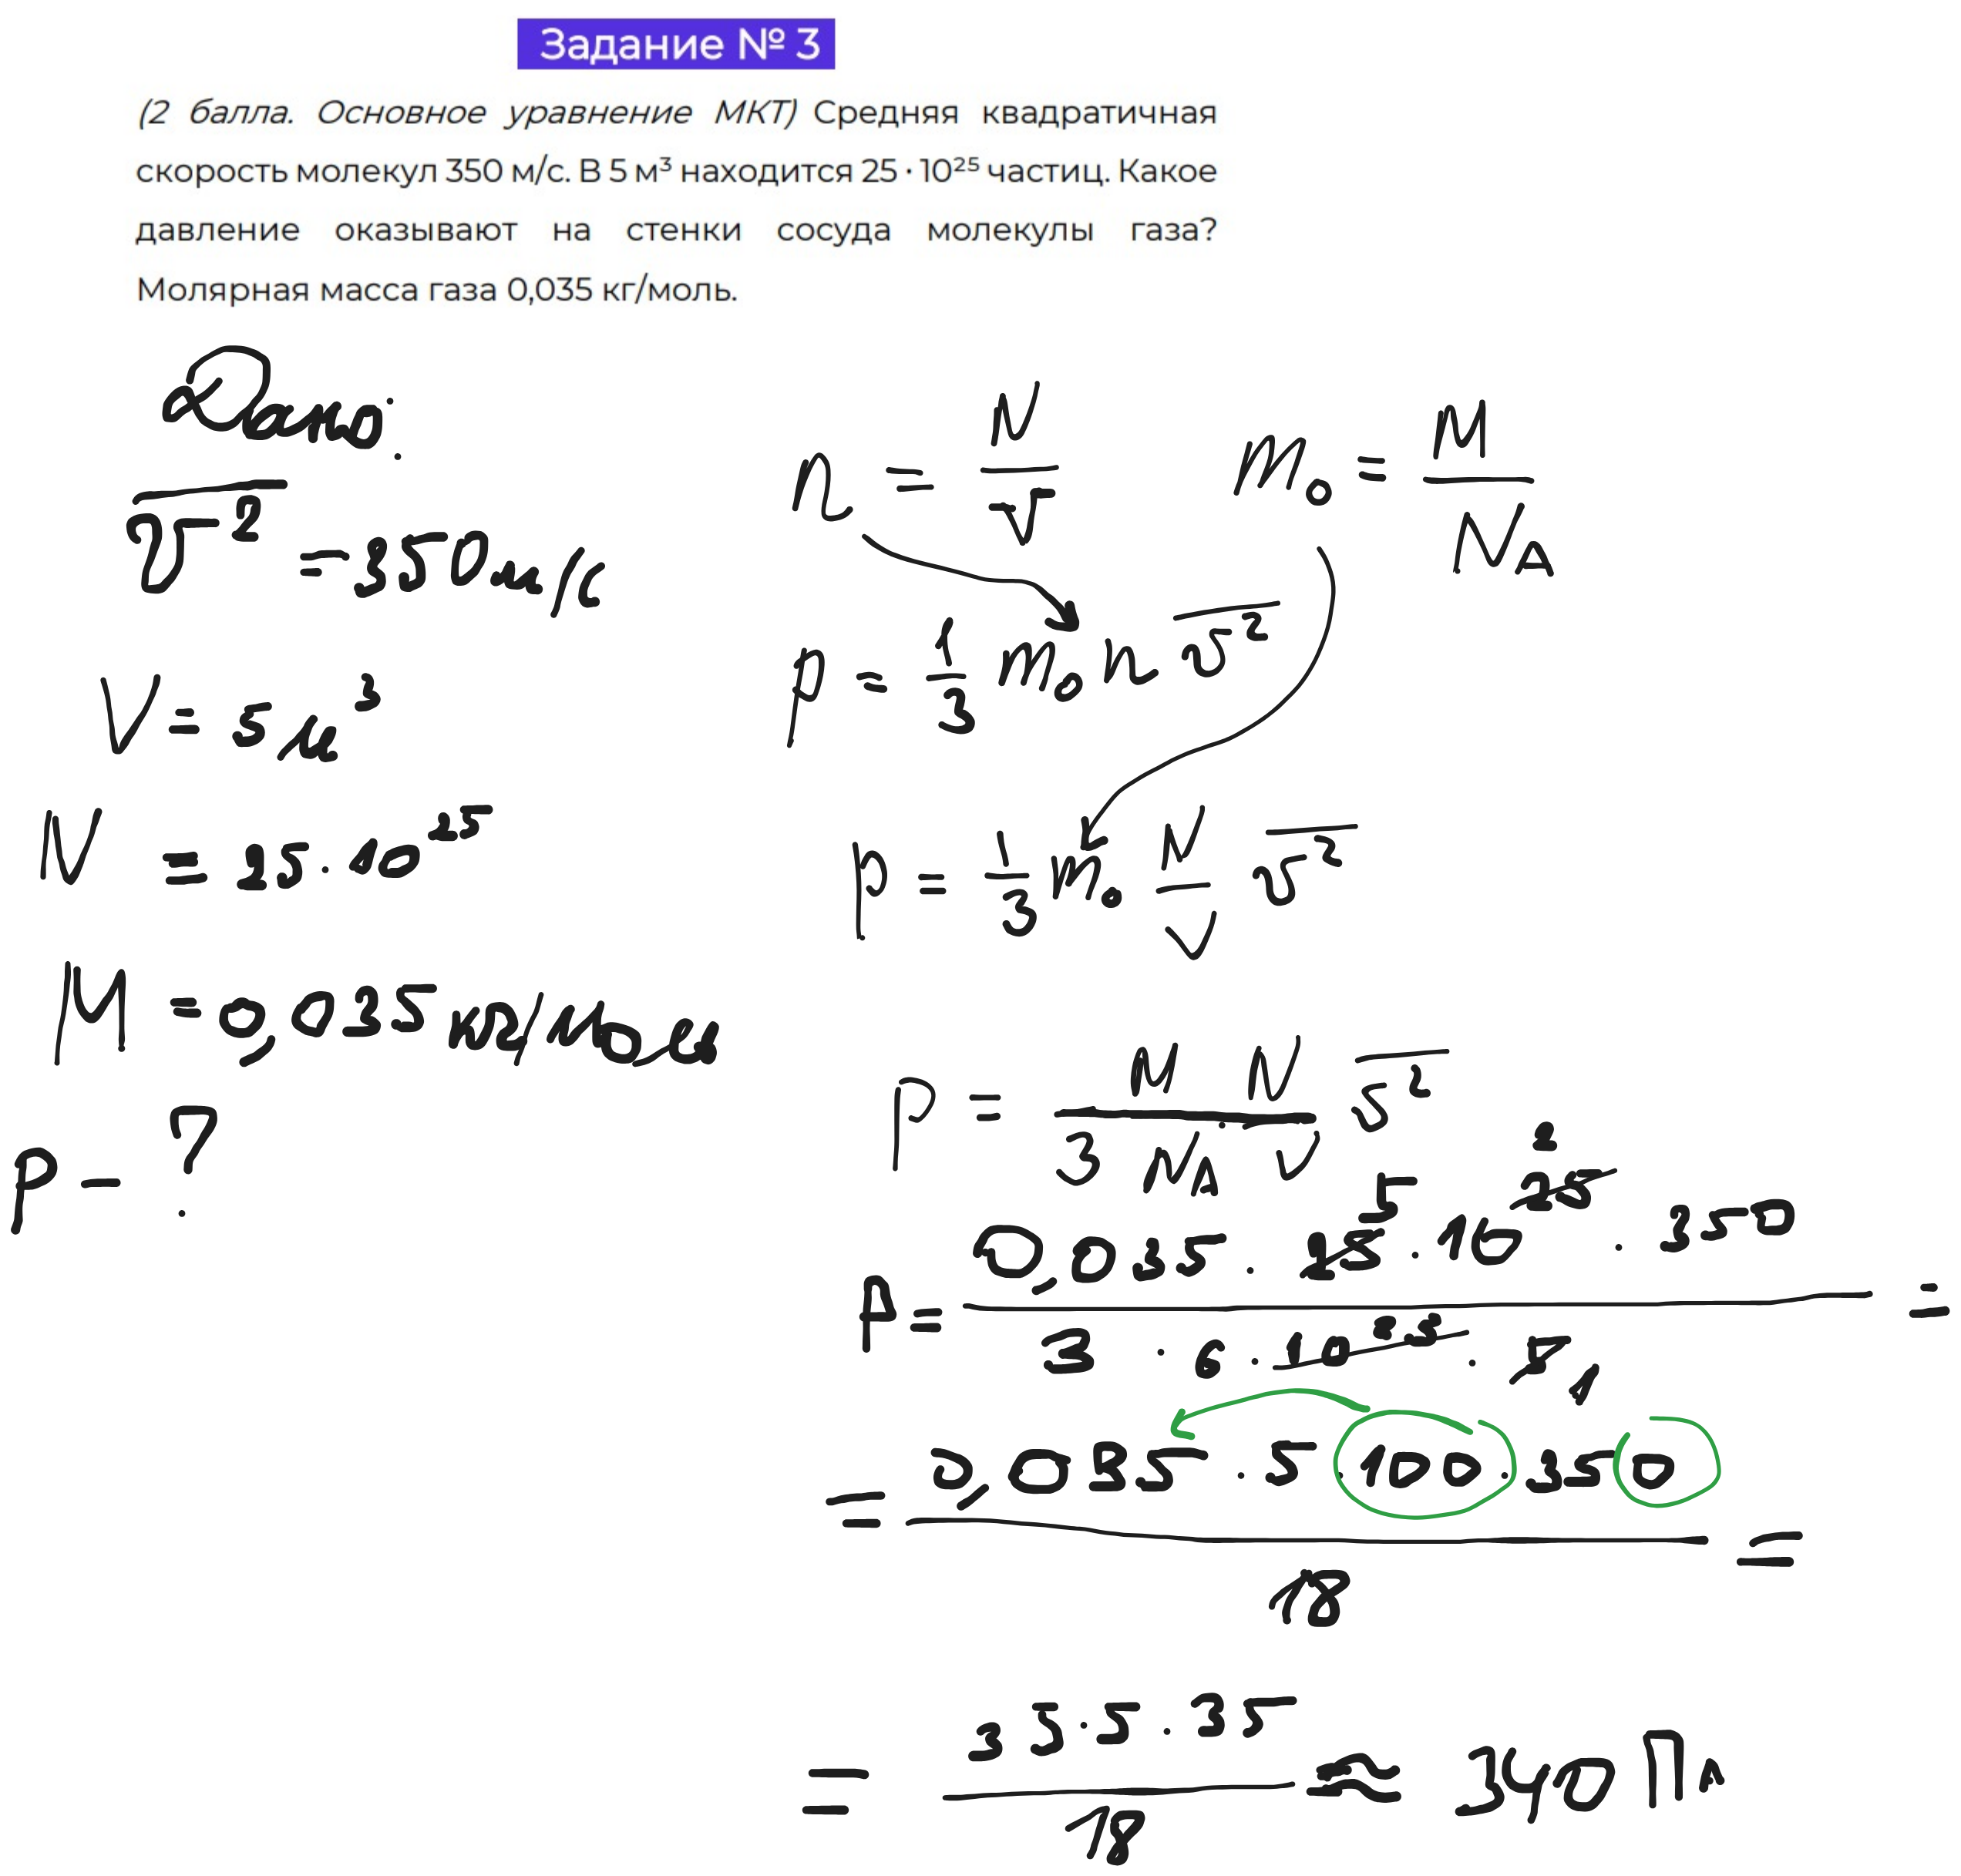 Задание № 3
(2 балла. Основное уравнение МКТ) Средняя квадратичная
скорость молекул 350 м/с. В 5 м³ находится 25 · 10²⁵ частиц. Какое
давление оказывают на стенки сосуда молекулы газа?
Молярная масса газа 0,035 кг/моль.
Дано:
v̅² = 350 м/с
V = 5 м³
N = 25 · 10²⁵
M = 0,035 кг/моль
p – ?
n = N/V
m₀ = M/N_A
p = 1/3 m₀ n v̅²
p = 1/3 m₀ N/V v̅²
p = M N / 3 N_A V v̅²
p = 0,035 · 25 5 · 10²⁵ 2 · 350 / 3 · 6 · 10²³ · 5 1 =
= 0,035 · 5 · 100 · 350 / 18 =
= 35 · 5 · 35 / 18 ≈ 340 Па